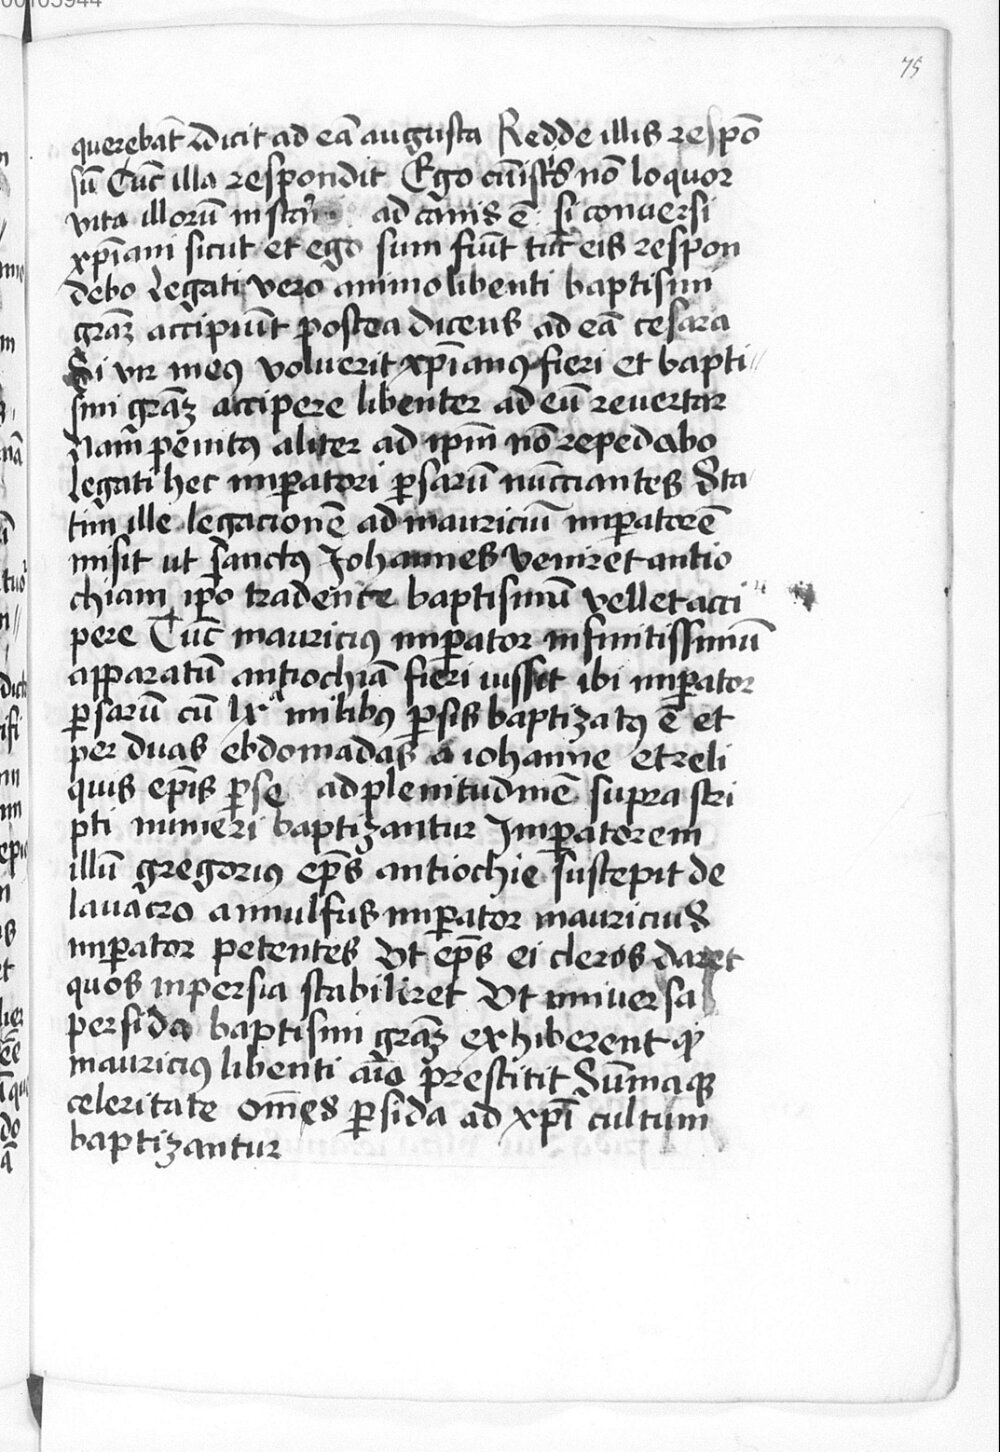 00105944
75
querebāt Adicit ad eā augusta Redde illis respō
sū Tūc illa respondit Ego cū istis nō loquor
vita illorū ad canis ē si conversi
xp̄iani sicut et ego sum fiūt tūc eis respon
debo Legati vero animo libenti baptismi
grāꝫ accipiūt postea dicens ad eā cesara
Si vir meꝯ voluerit xp̄ianꝯ fieri et bapti
smi grāꝫ accipere libenter ad eū revertar
Nam penitꝯ aliter ad ip̄m nō repedabo
Legati hec imꝑatori ꝑsarū nūcciantes Sta
tim ille legacionē ad mauriciū imꝑatorē
misit ut Sanctꝯ Johannes veniret antio
chiam ip̄o tradente baptismū vellet acci
pere Tūc mauriciꝯ imꝑator infinitissimū
apparatū antiochiā fieri iussit ibi imꝑator
ꝑsarū cū lx milibꝯ ꝑsis baptizatꝯ ē et
per duas ebdomadas a iohanne et reli
quis ep̄is ꝑse ad plenitudinē supra scri
pti numeri baptizantur Imꝑatorem
illū gregoriꝯ ep̄s antiochie suscepit de
lavacro annulfus imꝑator mauricius
imꝑator petentes Vt ep̄s ei cleros daret
quos in persia stabiliret Vt universa
persida baptismi grāꝫ exhiberent
mauriciꝯ libenti aīo prestitit Sūmaqꝫ
celeritate om̄es ꝑsida ad xp̄i cultum
baptizantur